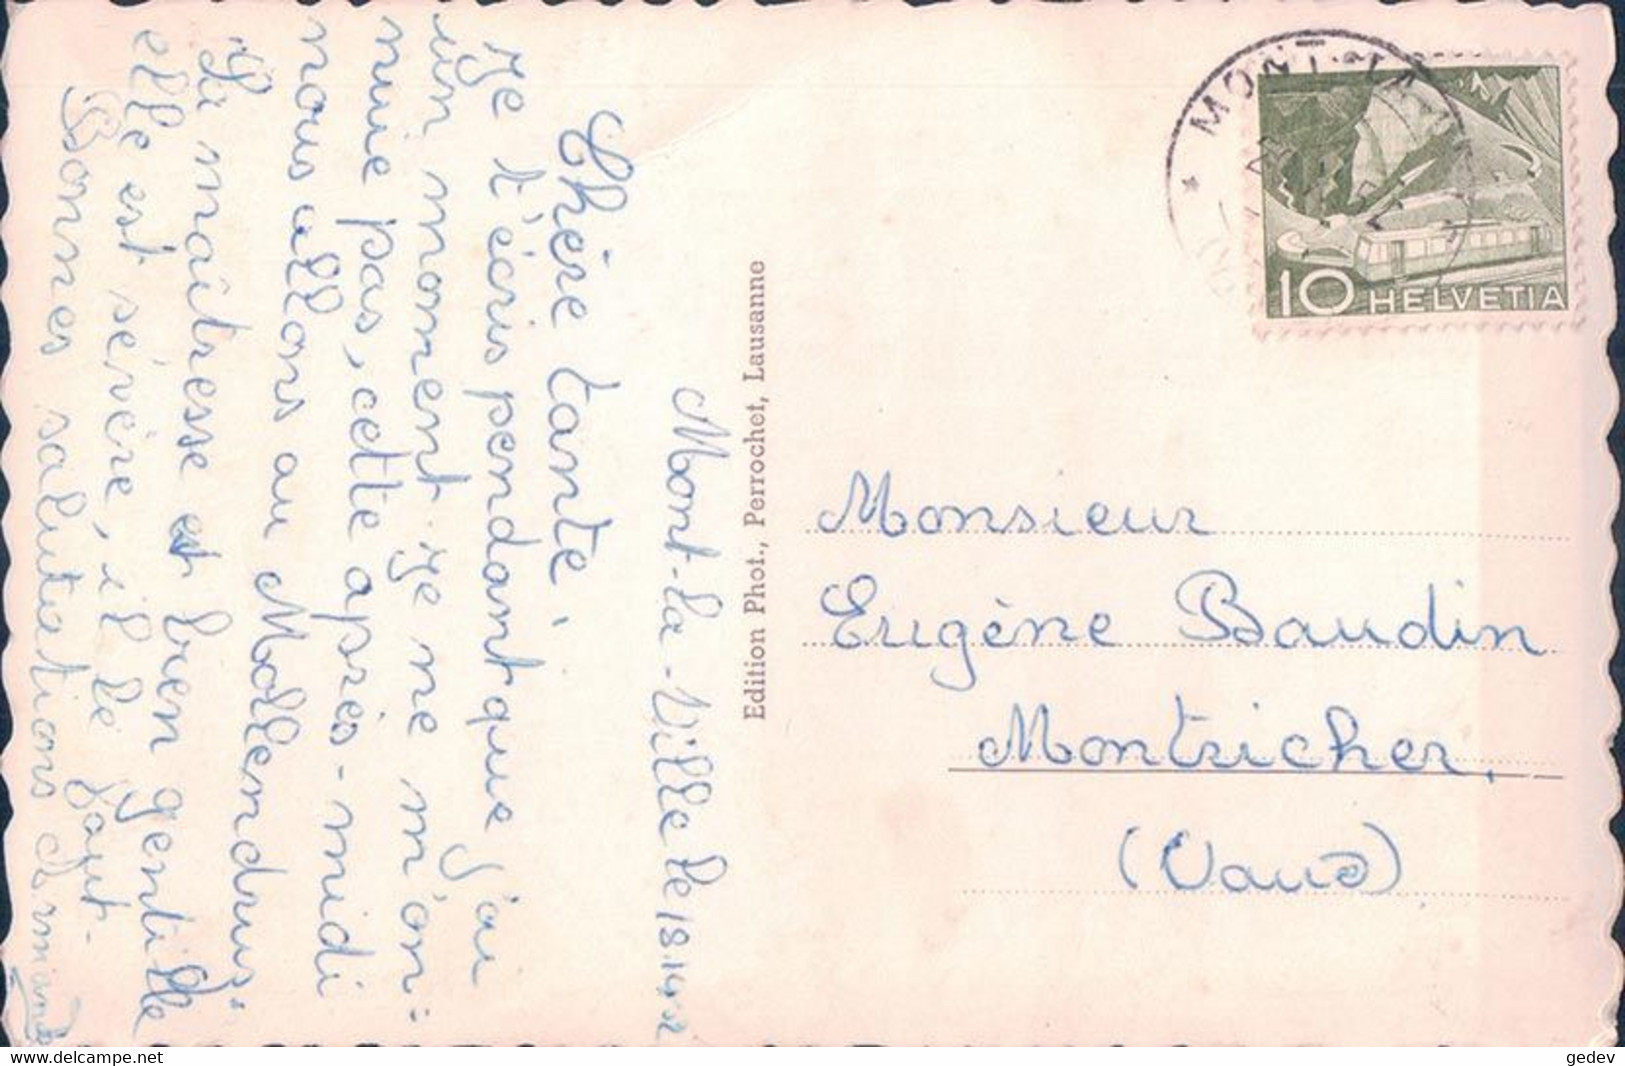 Mont-la-Ville le 18.
Chère tante,
Je t'écris pendant que j'ai
un moment. Je ne m'en=
nuie pas, cette après-midi
nous allons au Mollendruz.
La maîtresse est bien gentille
elle est sévère, il le faut.
Bonnes salutations
Edition Phot., Perrochet, Lausanne
MONT-LA-
10 HELVETIA
Monsieur
Eugène Baudin
Montricher,
(Vaud)
delcampe.net
gedev